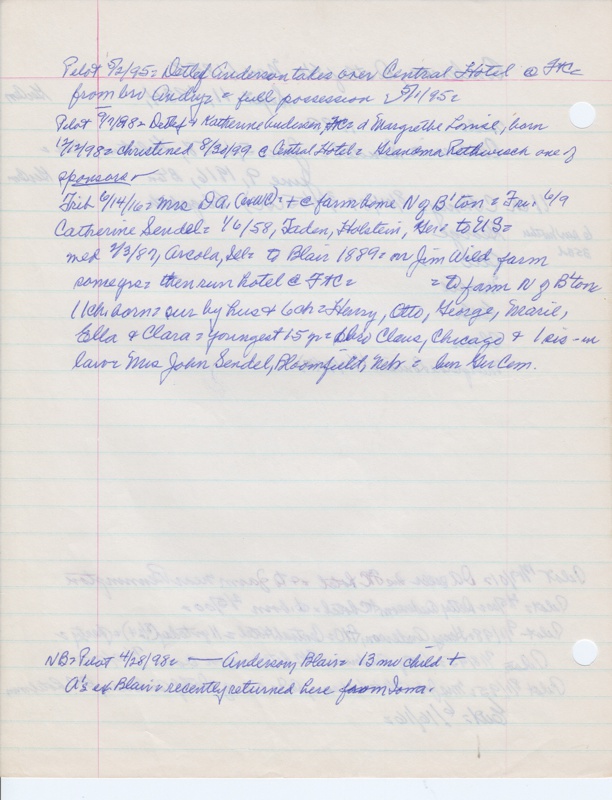 Pilot 5/2/95= Detlef Anderson takes over Central Hotel @ Ft C=
from bro Andry= full possession 5/1/95=
Pilot 9/7/98= Detlef & Katherine Anderson, Ft C= d Margrethe Louise, born
12/12/98= christened 8/20/99 @ Central Hotel= Grandma Rethwisch one of
sponsors
Trib 6/14/16= Mrs DA. + @ farm home N of B'ton= Fri 6/9
Catherine Sendel= 1/6/58, Faden, Holstein, Here to US=
med 2/3/87, Avoca, Ia= to Blair 1889= on Jim Wild farm
some yrs= then run hotel @ Ft C= = to farm N of B'ton
11 ch born= sur by hus & 6 ch= Henry, Otto, George, Marie,
Ella & Clara= youngest 15 yr= bro Claus, Chicago & 1 sis-in
law= Mrs John Sendel, Bloomfield, Neb= bur Ger Cem.
NB= Pilot 4/28/98= — Anderson, Blair= 13 mo child +
A's of Blair= recently returned here from Iowa.